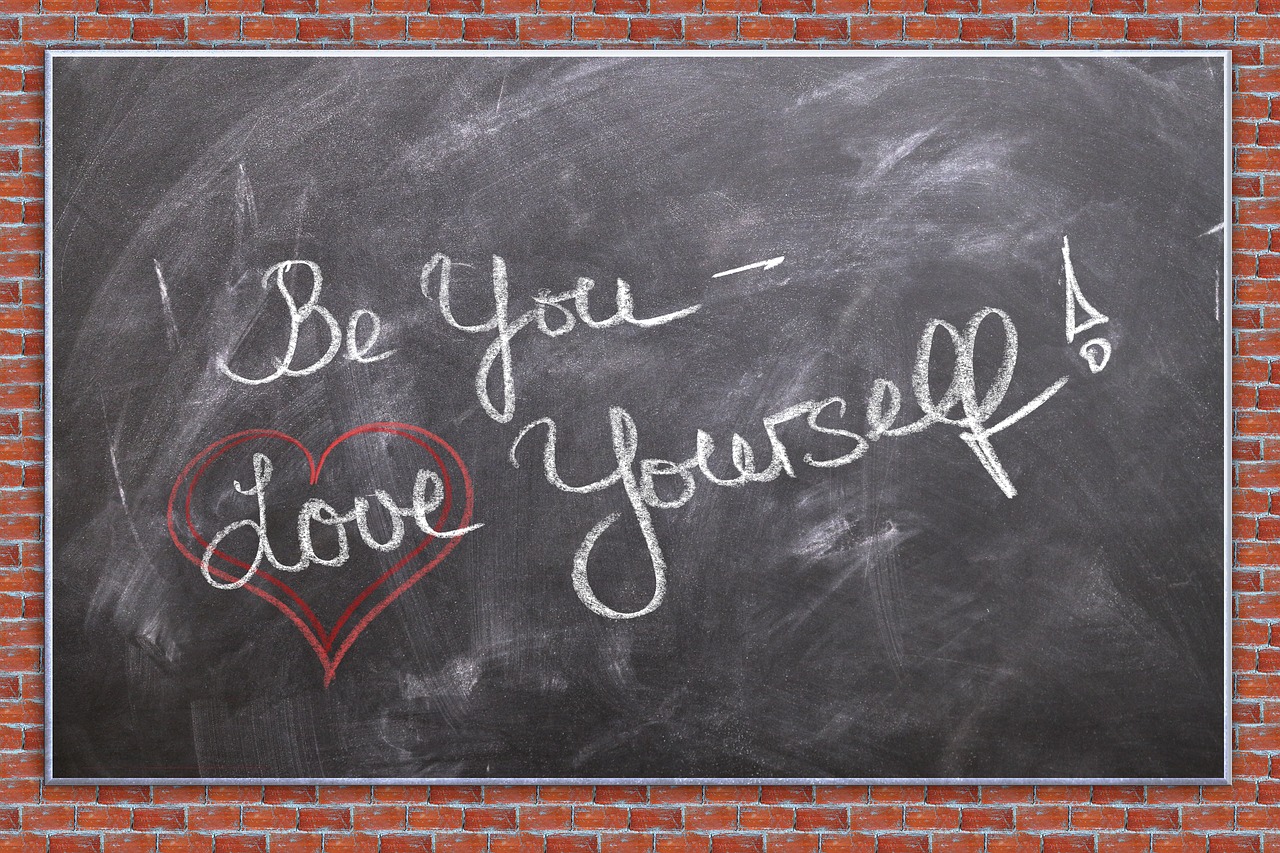 Be You –
Love Yourself!